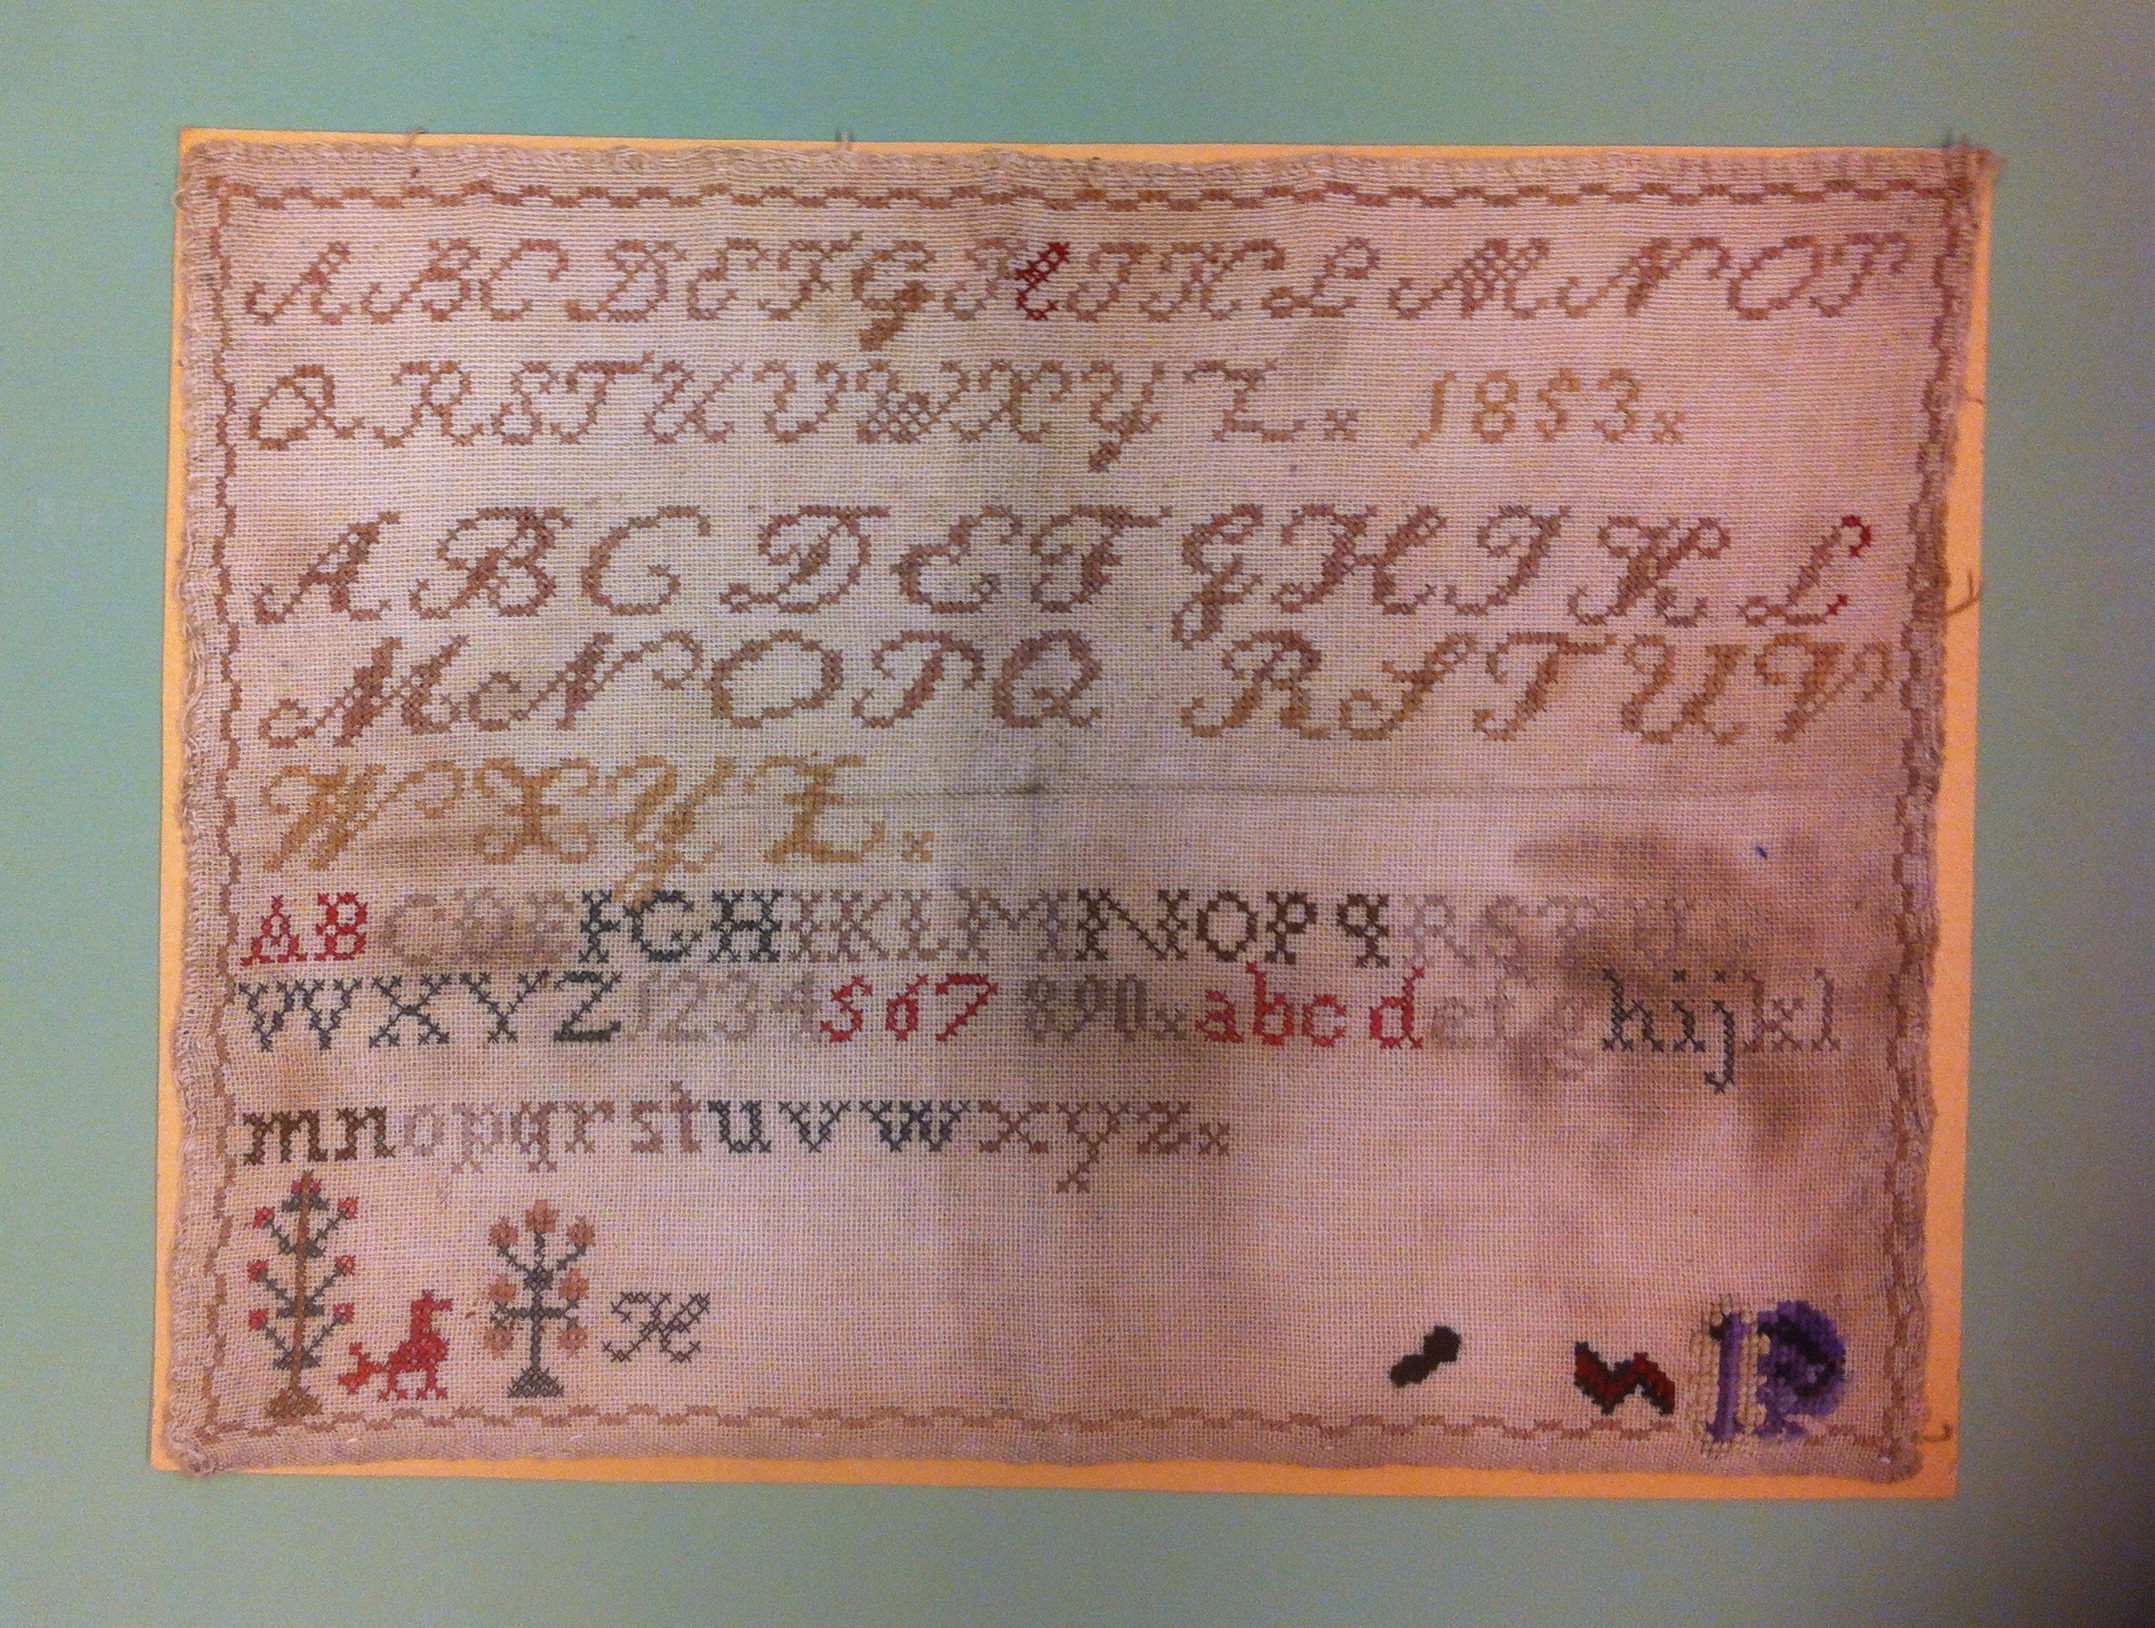 A B C D E F G H I K L M N O P
Q R S T U V W X Y Z x 1853 x
A B C D E F G H I K L
M N O P Q R S T U V
W X Y Z x
A B C D E F G H I K L M N O P q R S T U
W X Y Z 1 2 3 4 5 6 7 8 9 0 x a b c d e f g h i j k l
m n o p q r s t u v w x y z x
H